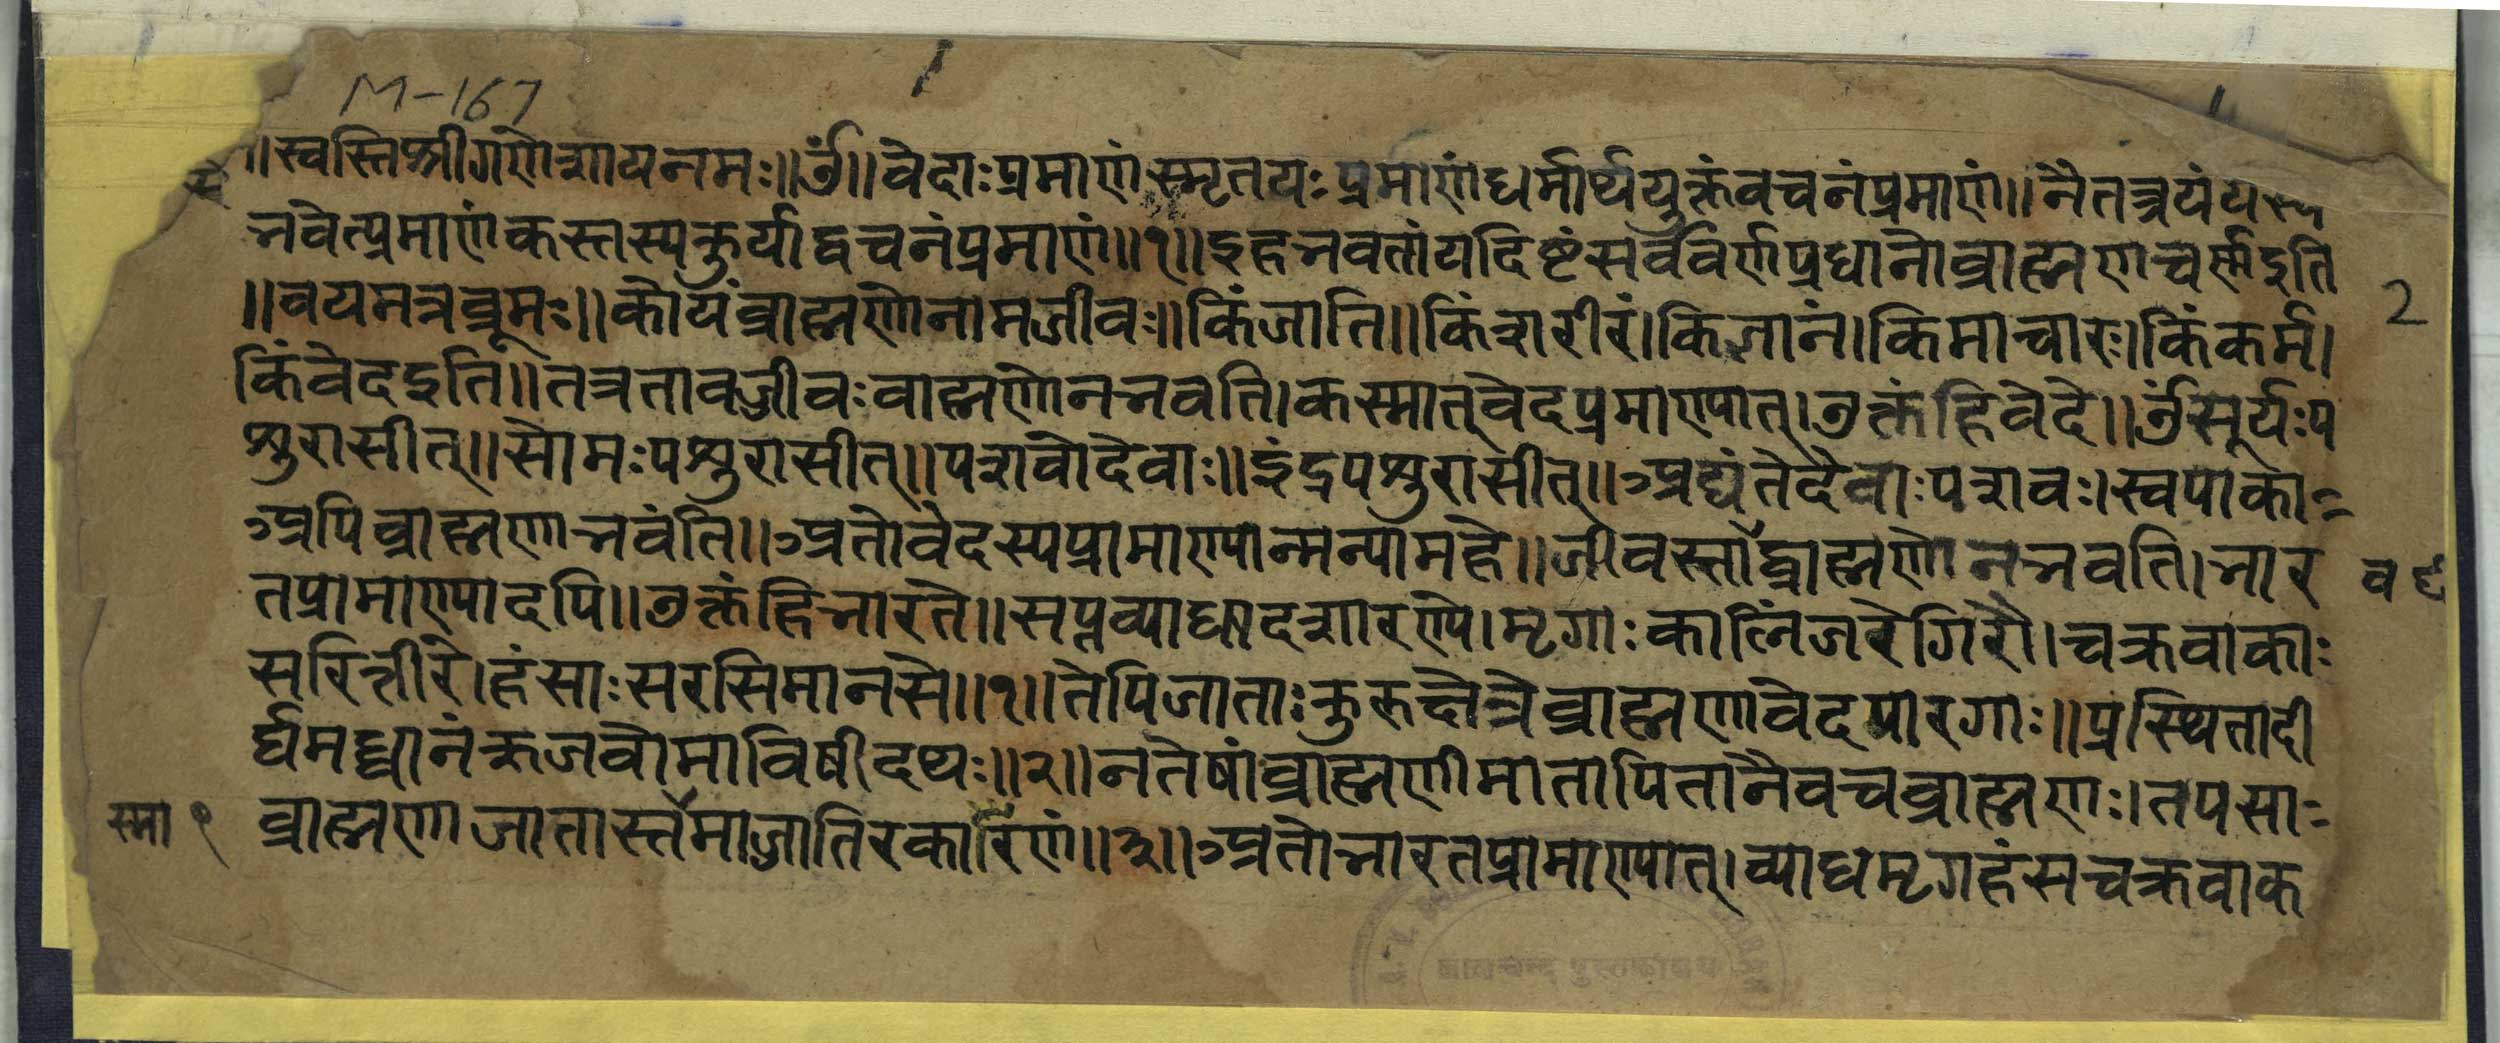 M-167
॥स्वस्तिश्रीगणेशायनमः॥ॐ॥वेदाःप्रमाणंस्मृतयःप्रमाणंधर्मार्थयुक्तंवचनंप्रमाणं॥नैतत्त्रयंयस्य
भवेत्प्रमाणंकस्तस्यकुर्याद्वचनंप्रमाणं॥१॥इहभवतांयदिष्टंसर्ववर्णप्रधानोब्राह्मणवर्णइति
2
॥वयमत्रब्रूमः॥कोयंब्राह्मणोनामजीवः॥किंजाति॥किंशरीरं।किंज्ञानं।किमाचारः।किंकर्म।
किंवेदइति॥तत्रतावज्जीवःब्राह्मणोनभवति।कस्मात्वेदप्रमाण्यात्।उक्तंहिवेदे॥ॐसूर्यःप
शुरासीत्॥सोमःपशुरासीत्॥पशवोदेवाः॥इंद्रपशुरासीत्॥अद्यंतेदेवाःपशवः।स्वपाका=
अपिब्राह्मणाभवंति॥अतोवेदस्यप्रामाण्यान्मन्यामहे॥जीवस्ताद्ब्राह्मणोनभवति।भार
तप्रामाण्यादपि॥उक्तंहिभारते॥सप्तव्याधादशारण्ये।मृगाःकालिंजरेगिरौ।चक्रवाकाः
सरित्तीरे।हंसाःसरसिमानसे॥१॥तेपिजाताःकुरुक्षेत्रेब्राह्मणावेदपारगाः॥प्रस्थितादी
र्घमध्वानंरुजवोमाविषीदथः॥२॥नतेषांब्राह्मणीमातापितानैवचब्राह्मणः।तपसा=
स्मा ९
ब्राह्मणाजातास्तस्माज्जातिरकारिणं॥३॥अतोभारतप्रामाण्यात्।व्याधमृगहंसचक्रवाक